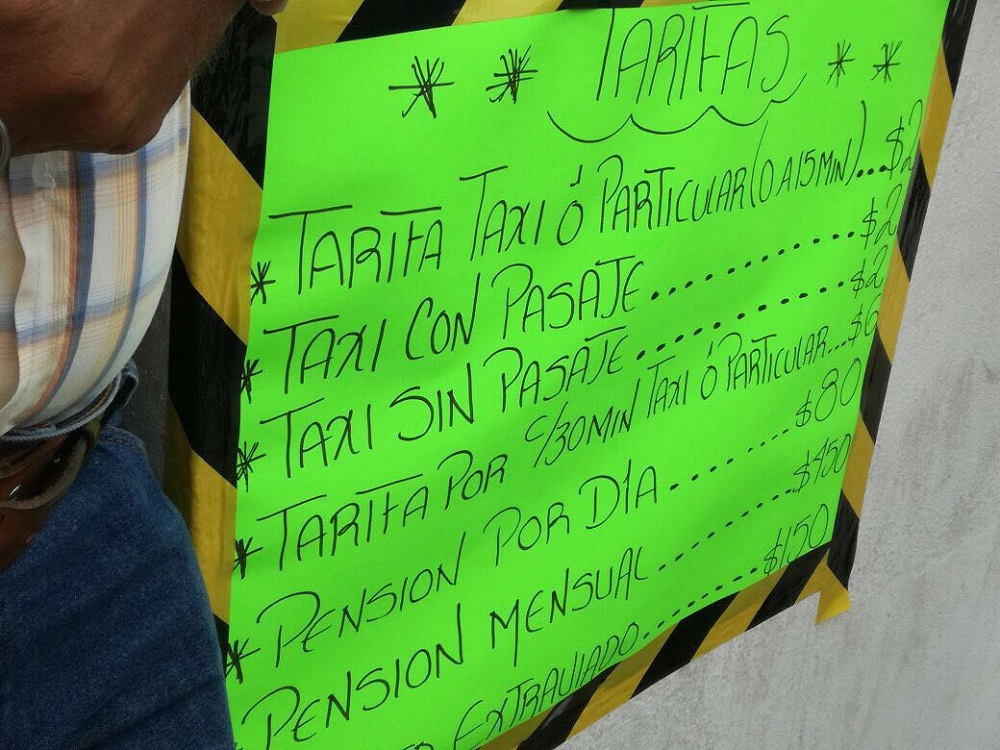 * * TARIFAS * *
* TARIFA TAXI Ó PARTICULAR (0 A 15 MIN)...$2
* TAXI CON PASAJE..........$2
* TAXI SIN PASAJE..........$2
* TARIFA POR C/30 MIN TAXI Ó PARTICULAR...$6
* PENSION POR DIA........$80
PENSION MENSUAL........$450
EXTRAVIADO........$150